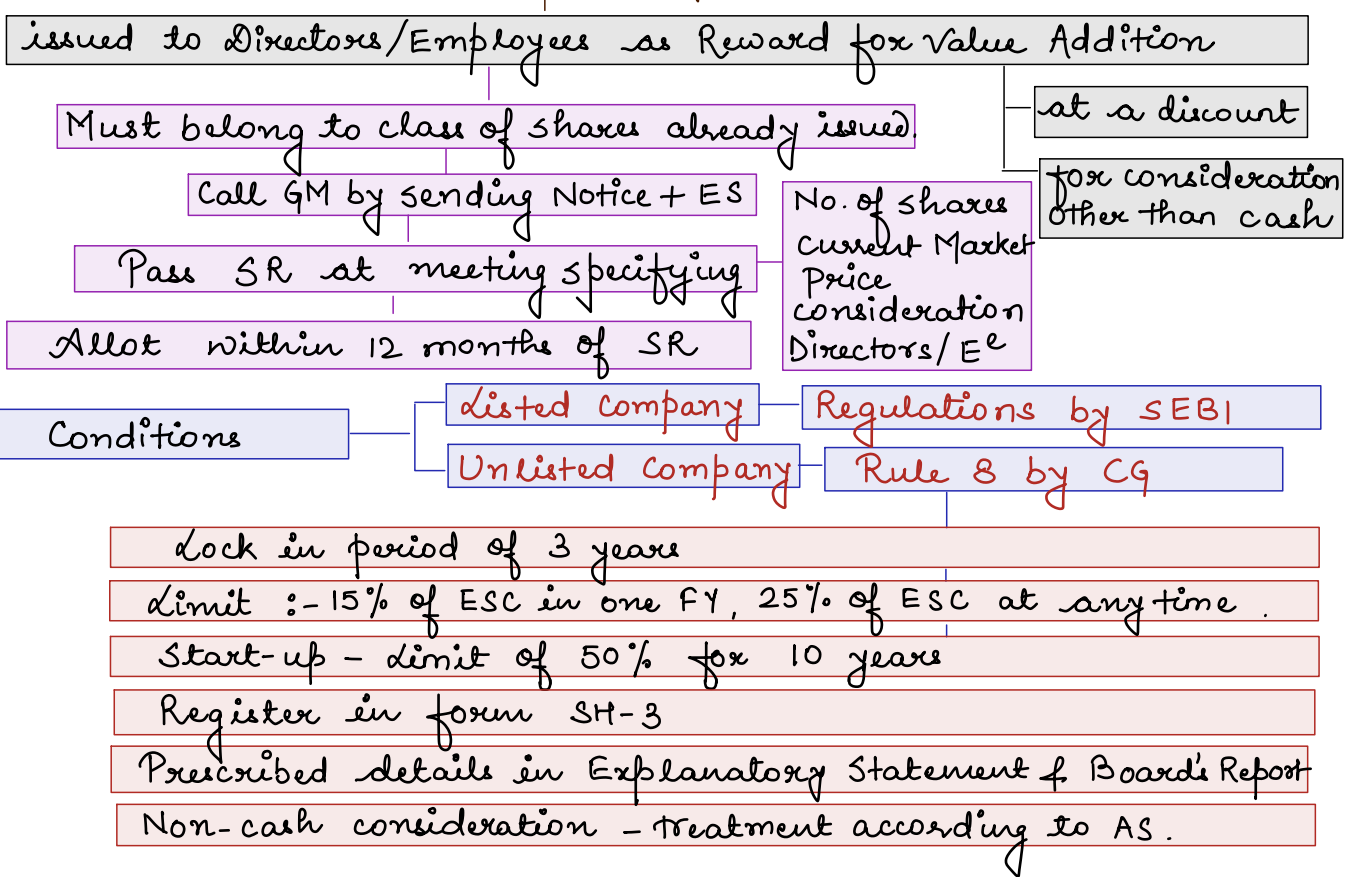 issued to Directors/Employees as Reward for Value Addition
at a discount
for consideration
other than cash
Must belong to class of shares already issued.
Call GM by sending Notice + ES
Pass SR at meeting specifying
No. of shares
Current Market
Price
consideration
Directors/Eᵉ
Allot within 12 months of SR
Conditions
Listed company
Regulations by SEBI
Unlisted Company
Rule 8 by CG
Lock in period of 3 years
Limit :- 15% of ESC in one FY, 25% of ESC at any time.
Start-up - Limit of 50% for 10 years
Register in form SH-3
Prescribed details in Explanatory Statement & Board's Report
Non-cash consideration - treatment according to AS.